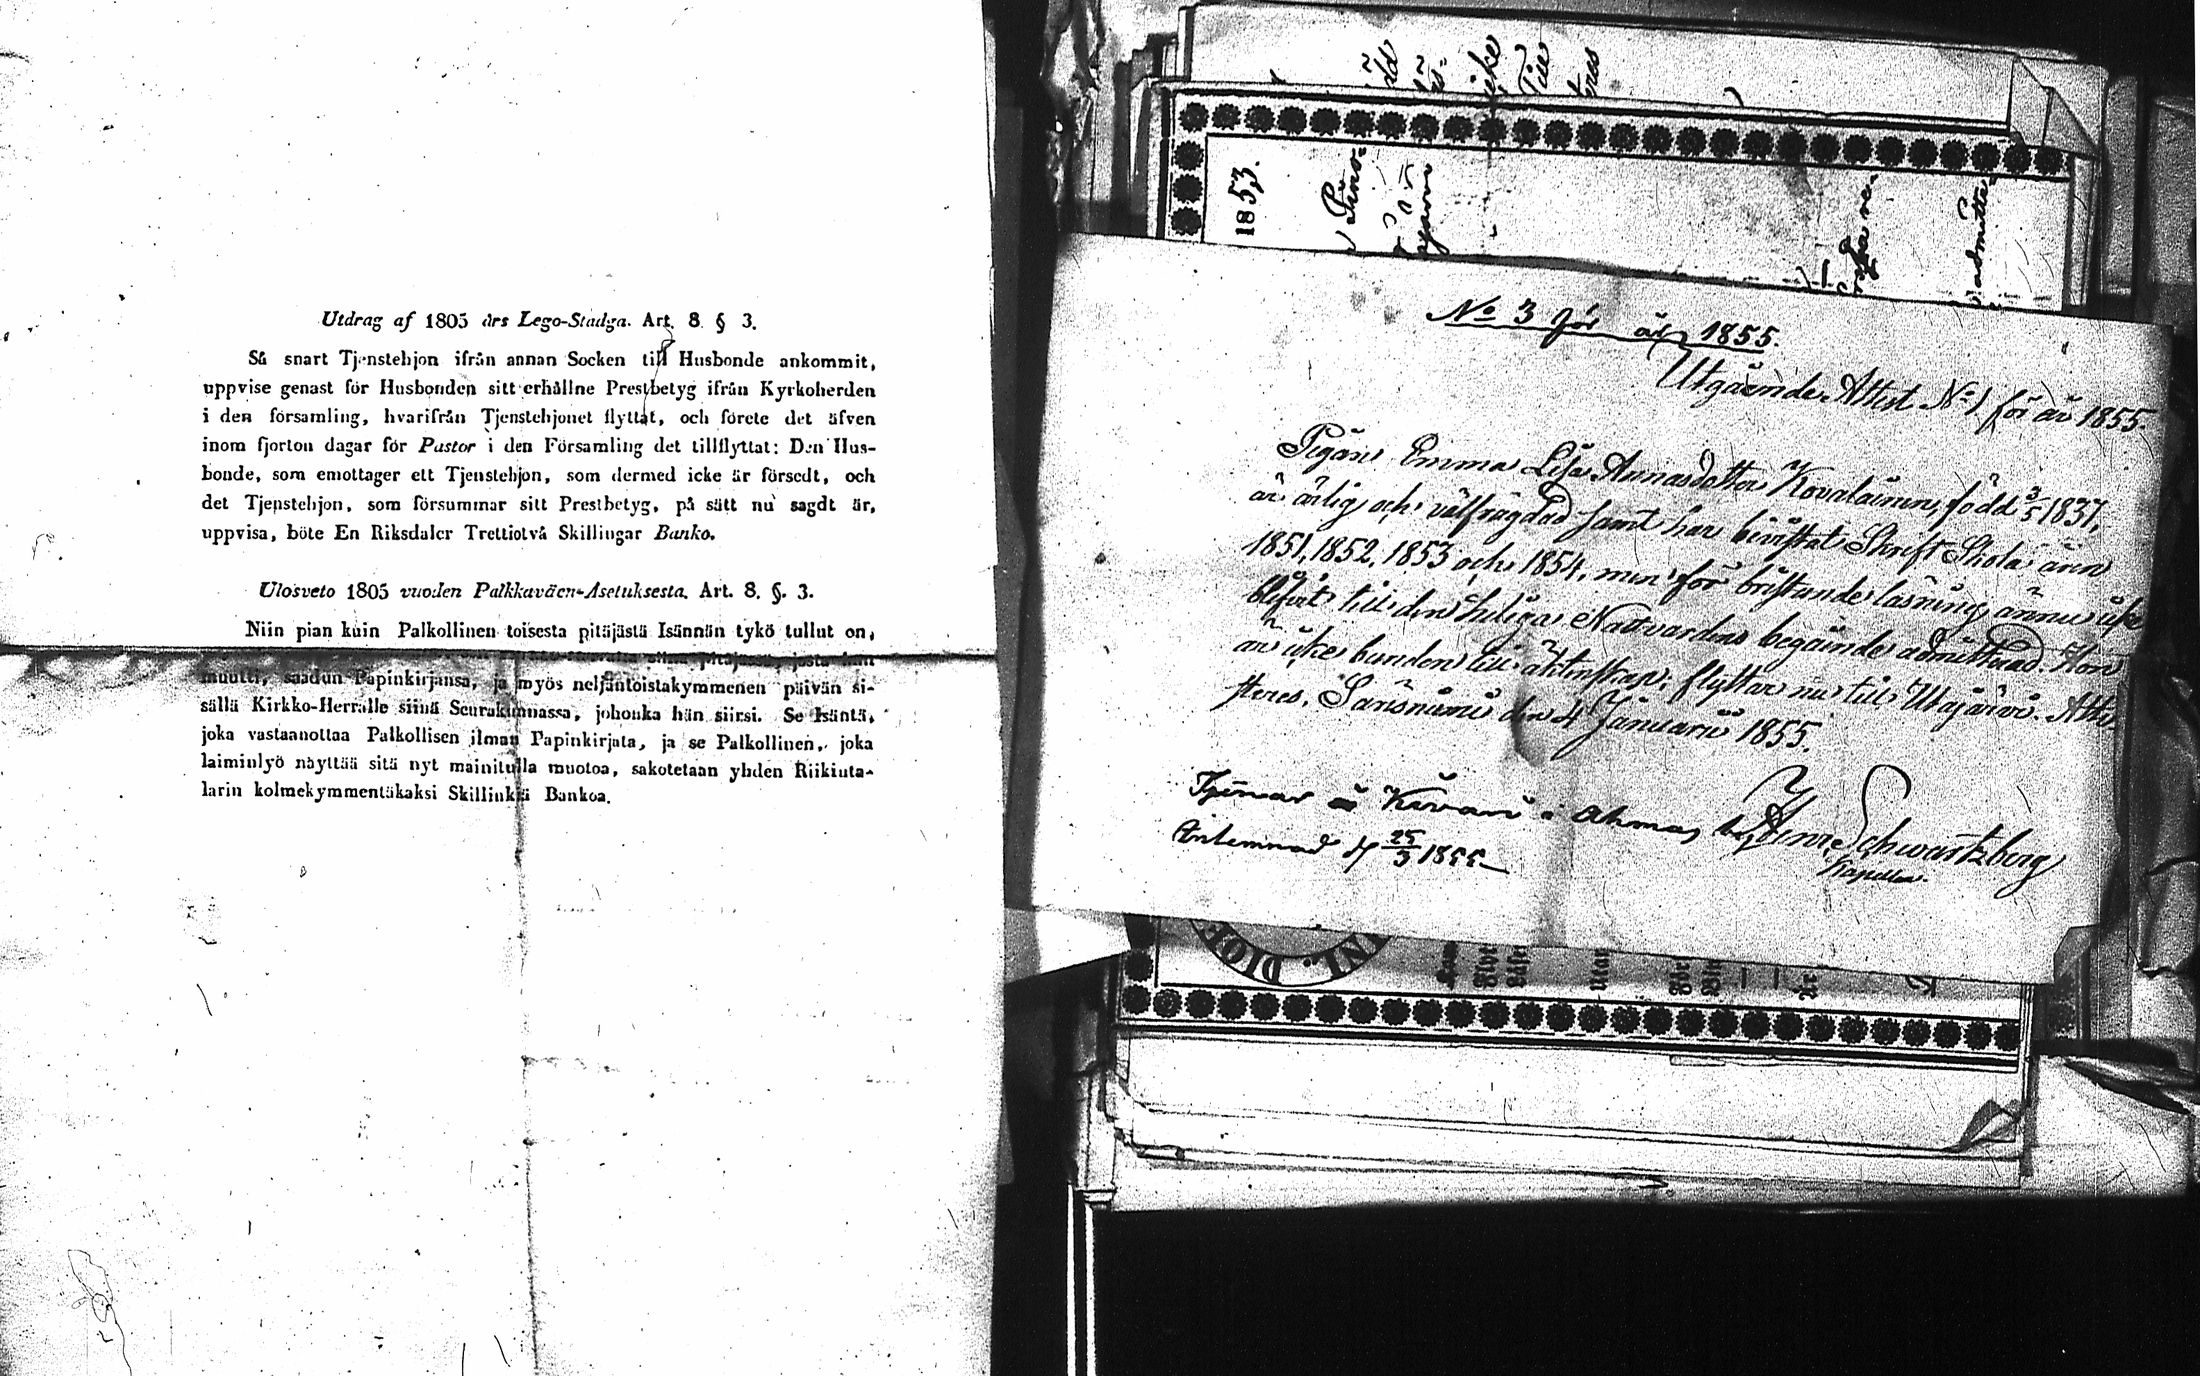 Utdrag af 1805 års Lego-Stadga. Art. 8 § 3.
Så snart Tjenstehjon ifrån annan Socken till Husbonde ankommit,
uppvise genast för Husbonden sitt erhållne Prestbetyg ifrån Kyrkoherden
i den församling, hvarifrån Tjenstehjonet flyttat, och förete det äfven
inom fjorton dagar för Pastor i den Församling det tillflyttat: Den Hus-
bonde, som emottager ett Tjenstehjon, som dermed icke är försedt, och
det Tjenstehjon, som försummar sitt Prestbetyg, på sätt nu sagdt är,
uppvisa, böte En Riksdaler Trettiotvå Skillingar Banko.
Ulosveto 1805 vuoden Palkkaväen-Asetuksesta. Art. 8. §. 3.
Niin pian kuin Palkollinen toisesta pitäjästä Isännän tykö tullut on,
muutti, saadun Papinkirjansa, ja myös neljäntoistakymmenen päivän si-
sällä Kirkko-Herralle siinä Seurakunnassa, johonka hän siirsi. Se Isäntä,
joka vastaanottaa Palkollisen ilman Papinkirjata, ja se Palkollinen, joka
laiminlyö näyttää sitä nyt mainitulla muotoa, sakotetaan yhden Riikinta-
larin kolmekymmentäkaksi Skillinkiä Bankoa.
1853.
No 3 för år 1855.
Utgående Attest No 1 för år 1855.
Pigan Emma Lisa Annasdotter Kovalainen, född 3/5 1837,
är ärlig och välfrägdad samt har bevistat Skrift Skola åren
1851, 1852, 1853 och 1854, men för bristande läsning ännu icke
blifvit till den heliga Nattvardens begående admitterad. Hon
är icke bunden till äktenskap, flyttar nu till Utajärvi. Atte-
steres. Säräsniemi den 4 Januarii 1855.
Henr. Schwartzberg
Kapellan.
Tjenar å Kivari i Ahmas by
Inlemnad d 25/3 1855.